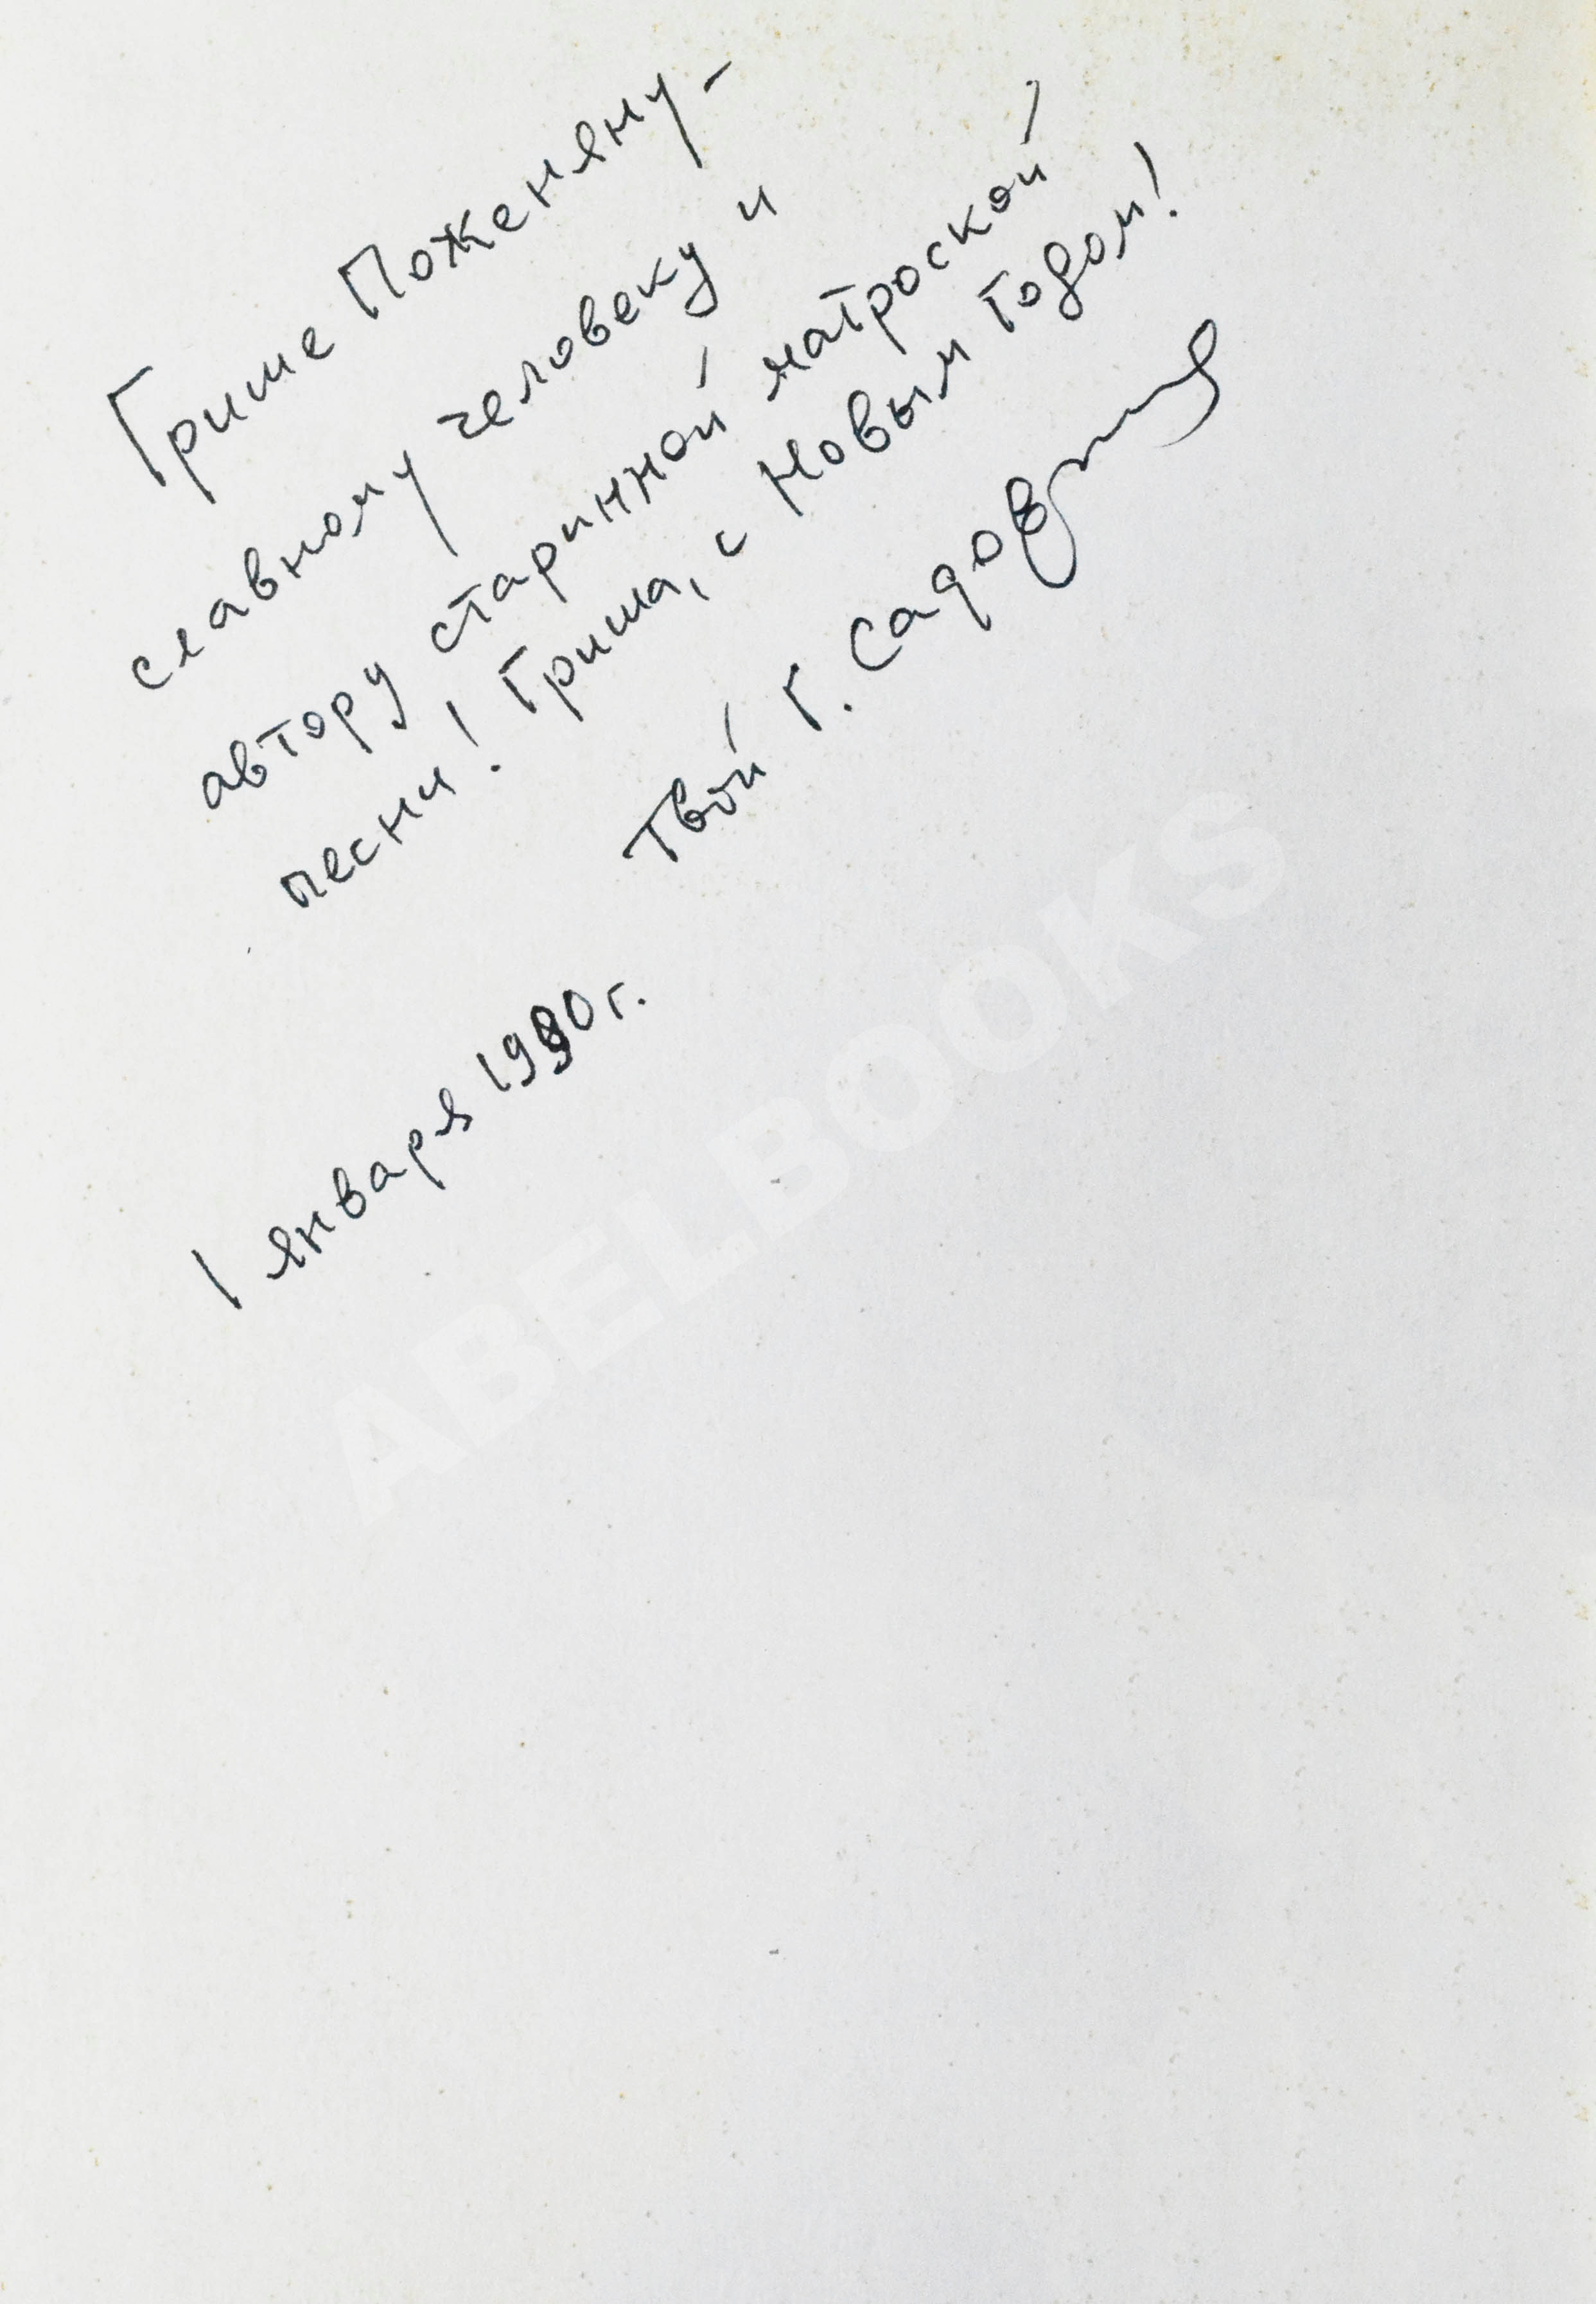 Грише Поженяну -
славному человеку и
автору старинной матроской
песни! Гриша, с Новым Годом!
Твой Г. Садовников
1 января 1990 г.
ABELBOOKS